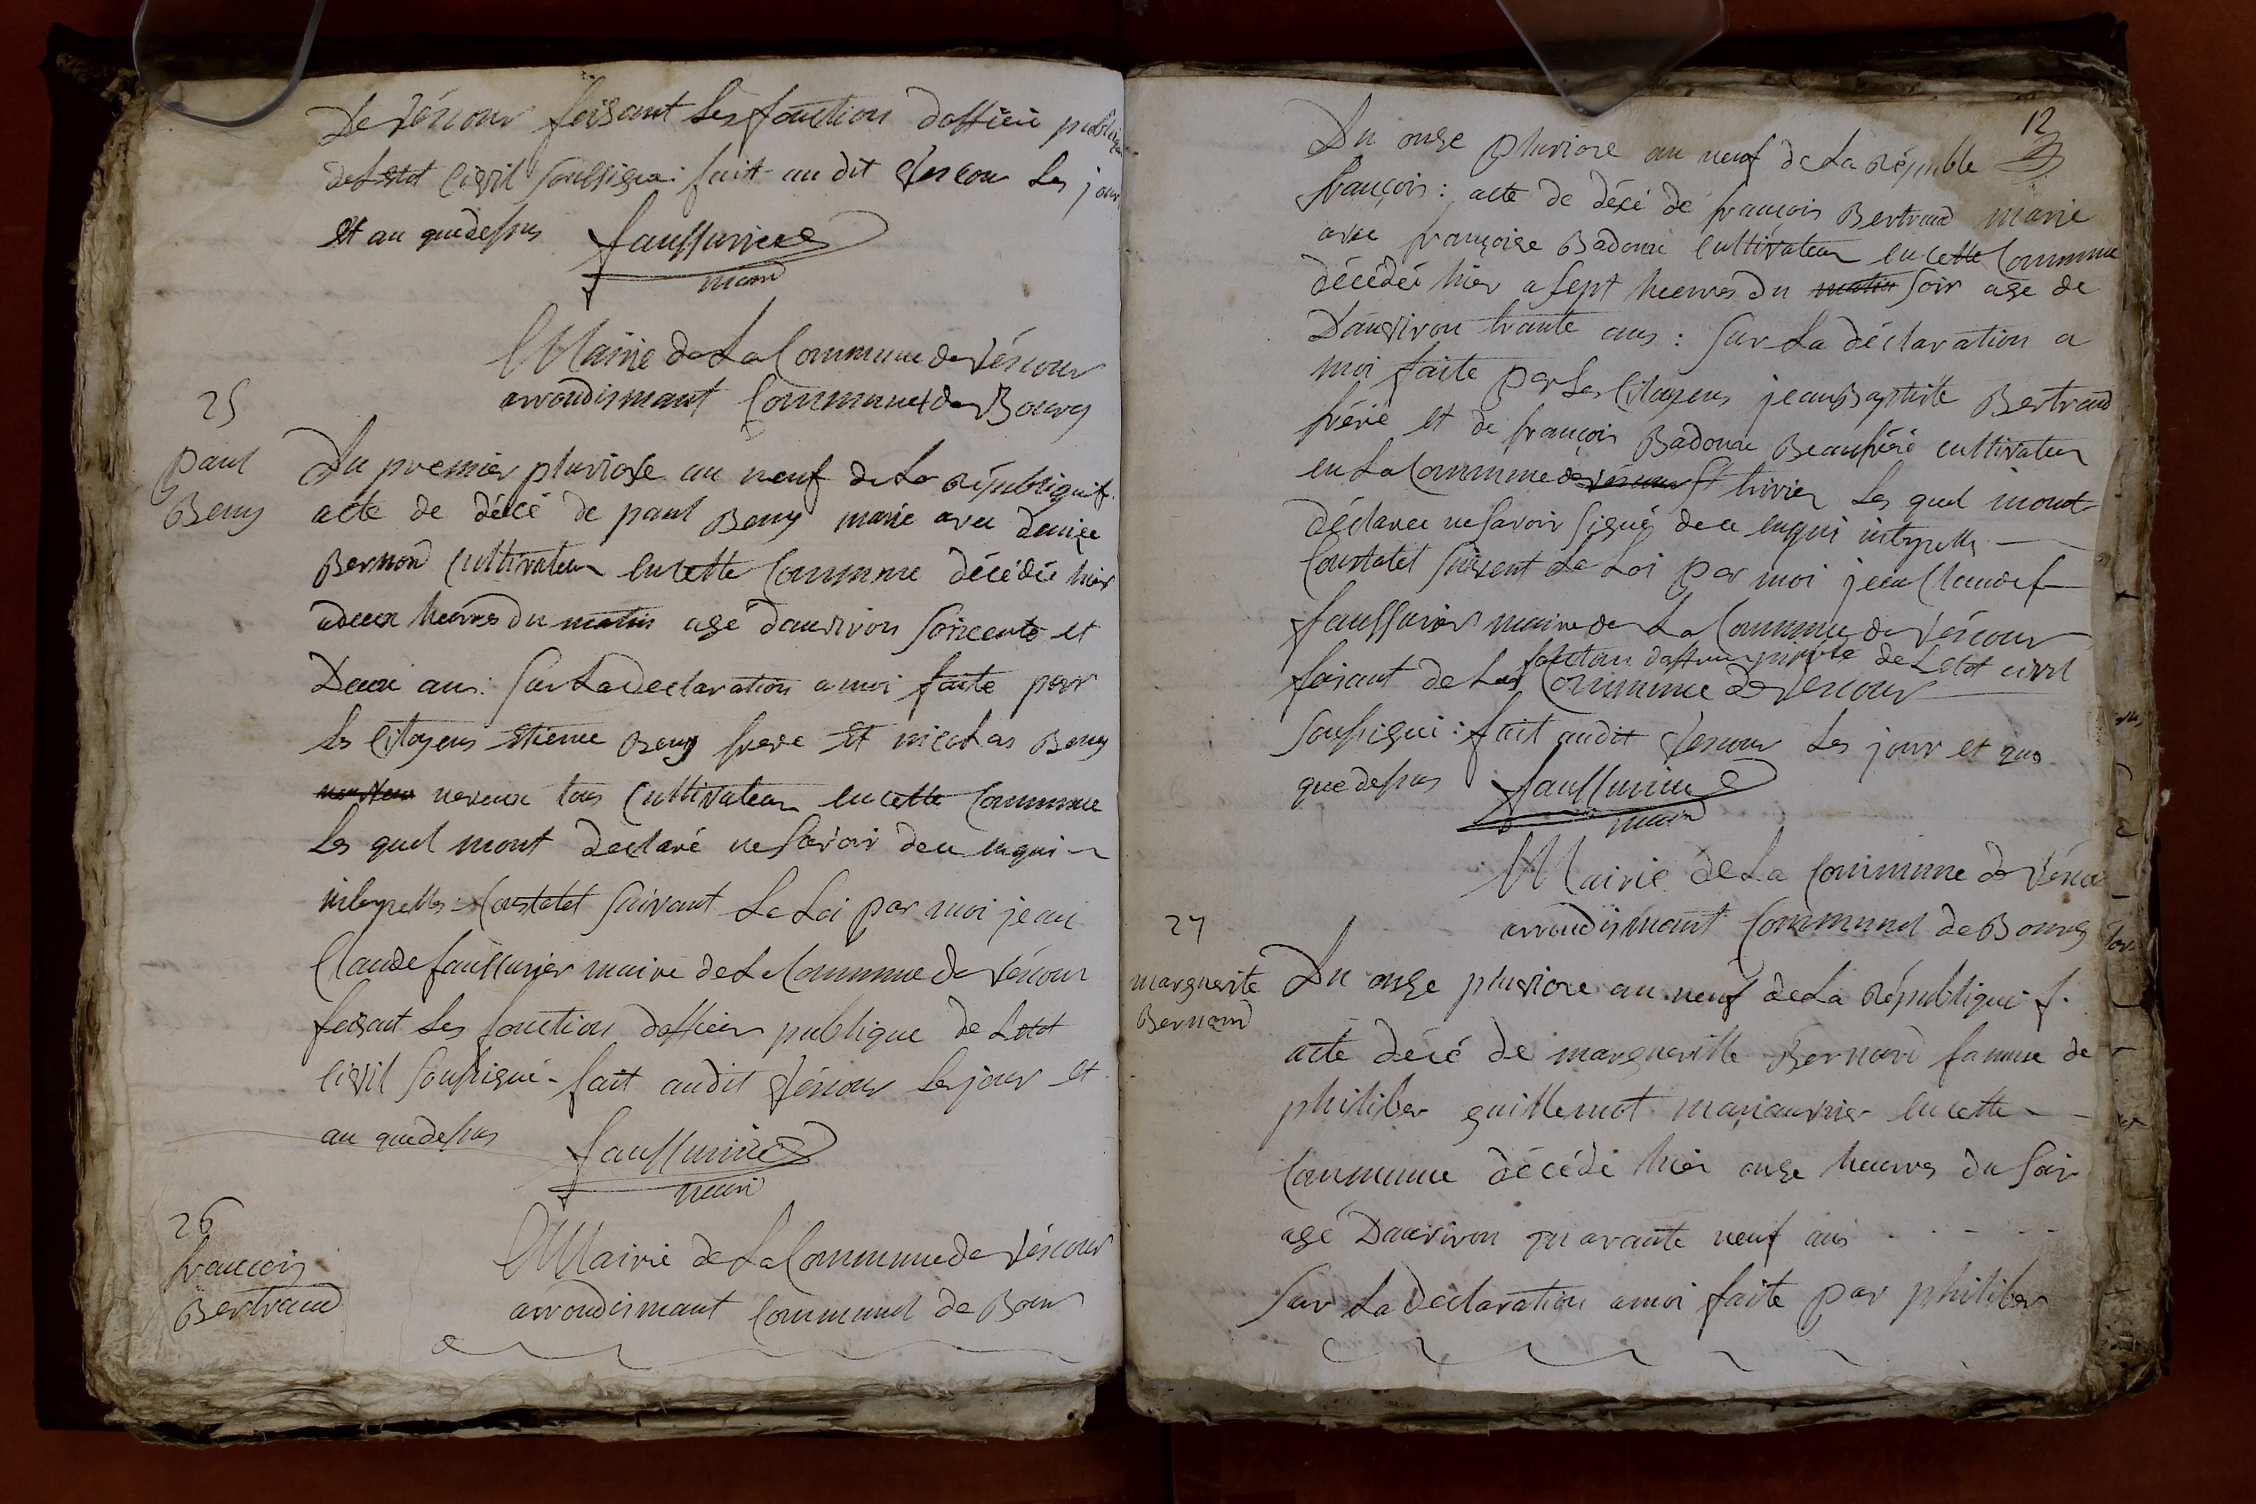 De Véscour feisant les fonction dofficié publique
de Letat Civil Soussigné : fait audit Vescour Les jour
Et an que dessus faussurier
maire
Mairie de La Commune de Véscour
arrondismant Communel de Bourg
25
paul
Beny
Du premier pluviose an neuf de La République f.
acte de décé de paul Beny marié avec denise
Bernard Cultivateur en cette Commune décédée hier
a deux heures du matin agé danviron soixente et
Deux ans : Sur La Declaration a moi faite par
Les Citoyens Etienne Beny frere Et nicolas Beny
neveux tous Cultivateur en cette Commune
Les quel mont declaré ne savoir de ce enqui
interpellés Constatet Suivant La Loi par moi jean
Claude faussurier maire de La Commune de Véscour
feisant Les fonction dofficier publique de Letat
Civil Soussigné - fait audit Véscour Les jour et
an que dessus
faussurier
maire
26
françois
Bertrand
Mairie de La Commune de Véscour
arrondismant Communel de Bour
12
Du onze pluviose an neuf de La Républe
françois : acte de décé de françois Bertrand marie
avec françoise Badoux Cultivateur en cette Commune
décédée hier a sept heures du matin soir age de
Danviron trante ans : Sur La déclaration a
moi faite par Les Citoyens jean Baptiste Bertrand
fréré et de françois Badoux Beaufréré cultivateur
en La Commune de Véscour St trivier Les quel mont
déclarer ne savoir signé de ce enqui interpellés
Constatet suivent La Loi par moi jean Claude f
faussurier maire de La Commune de Véscour
fonction dofficier publique de Letat civil
faisant de Les Commune de Vescour
Soussigné : fait audit Vescour Les jour et
que dessus faussurier
maire
Mairie de La Commune de Vésco
arrondismant Communel de Bourg
27
marguerite
Bernard
Du onze pluviose an neuf de La République f.
acte décé de margueritte Bernard famme de
philiber guillemot en cette
Commune décédé hier onze heures du soir
agé Danviron quarante neuf ans
Sur La déclaration a moi faite par philiber